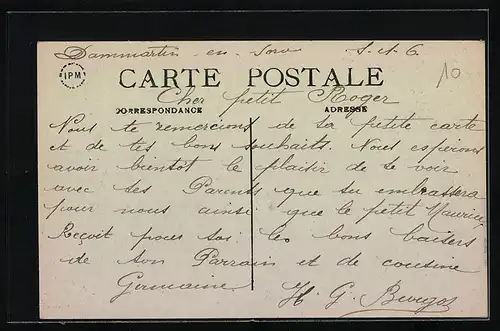 Dammartin en Serve S.et.O.
IPM
CARTE POSTALE
10
Cher petit Roger
CORRESPONDANCE ADRESSE
Nous te remercions de ta petite carte
et de tes bons souhaits. Nous esperons
avoir bientôt le plaisir de te voir
avec tes Parents que tu embrassera
pour nous ainsi que le petit Maurice
Reçoit pour toi les bons baisers
de ton Parrain et de cousine
Germaine H. G.